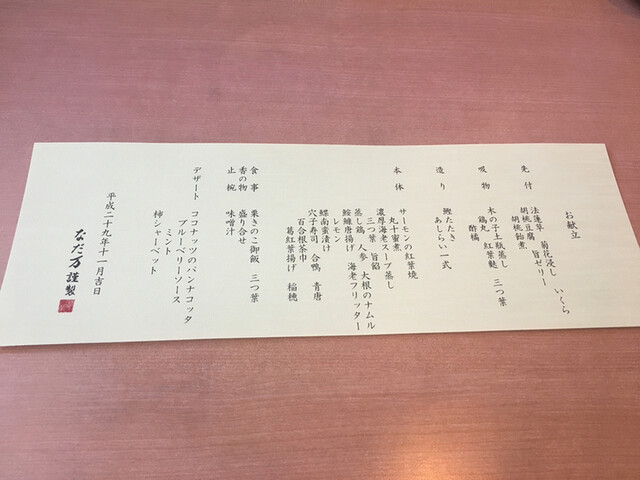 お献立
先付 法蓮草 菊花浸し いくら
胡桃豆腐 旨ゼリー
胡桃飴煮
吸物 木の子土瓶蒸し
鶏丸 紅葉麩 三つ葉
酢橘
造り 鰹たたき
あしらい一式
本体 サーモンの紅葉焼
丸十蜜煮
濃厚海老スープ蒸し
三つ葉 旨餡
蒸し鶏 人参 大根のナムル
鮟鱇唐揚げ 海老フリッター
レモン
鰈南蛮漬け
穴子寿司 合鴨 青唐
百合根茶巾
葛紅葉揚げ 稲穂
食事 栗きのこ御飯 三つ葉
香の物 盛り合せ
止椀 味噌汁
デザート ココナッツのパンナコッタ
ブルーベリーソース
ミント
柿シャーベット
平成二十九年十一月吉日
なだ万謹製